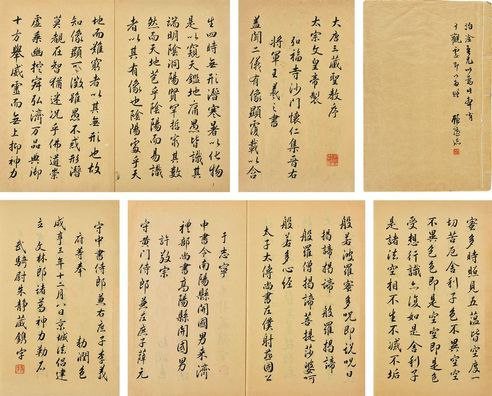 大唐三藏聖教序
太宗文皇帝製
弘福寺沙門懷仁集晉右
將軍王羲之書
蓋聞二儀有像顯覆載以含
生四時無形潛寒暑以化物
是以窺天鑑地庸愚皆識其
端明陰洞陽賢哲罕窮其數
然而天地苞乎陰陽而易識
者以其有像也陰陽處乎天
地而難窮者以其無形也故
知像顯可徵雖愚不惑形潛
莫覩在智猶迷況乎佛道崇
虛乘幽控寂弘濟萬品典御
十方舉威靈而無上抑神力
蜜多時照見五蘊皆空度一
切苦厄舍利子色不異空空
不異色色即是空空即是色
受想行識亦復如是舍利子
是諸法空相不生不滅不垢
般若波羅蜜多咒即說咒曰
揭諦揭諦 般羅揭諦
般羅僧揭諦菩提莎婆呵
般若多心經
太子太傅尚書左僕射燕國公
于志寧
中書令南陽縣開國男來濟
禮部尚書高陽縣開國男
許敬宗
守黃門侍郎兼左庶子薛元
守中書侍郎兼右庶子李義
府等奉 勅潤色
咸亨三年十二月八日京城法侶建
立 文林郎諸葛神力勒石
武騎尉朱靜藏鐫字